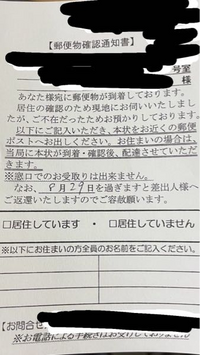 【郵便物確認通知書】
号室
様
あなた様宛に郵便物が到着しております。
居住の確認のため現地にお伺いいたしました
が、ご不在だったためお預かりしております。
以下にご記入いただき、本状をお近くの郵便
ポストへお出しください。お住まいの場合は、
当局に本状が到着・確認後、配達させていただ
きます。
※窓口でのお受取りは出来ません。
なお、8月29日を過ぎますと差出人様へ
ご返還いたしますのでご容赦願います。
□居住しています ・ □居住していません
※以下にお住まいの方全員のお名前をご記入ください。
【お問合せ
※お電話による手続きはお受けしておりません